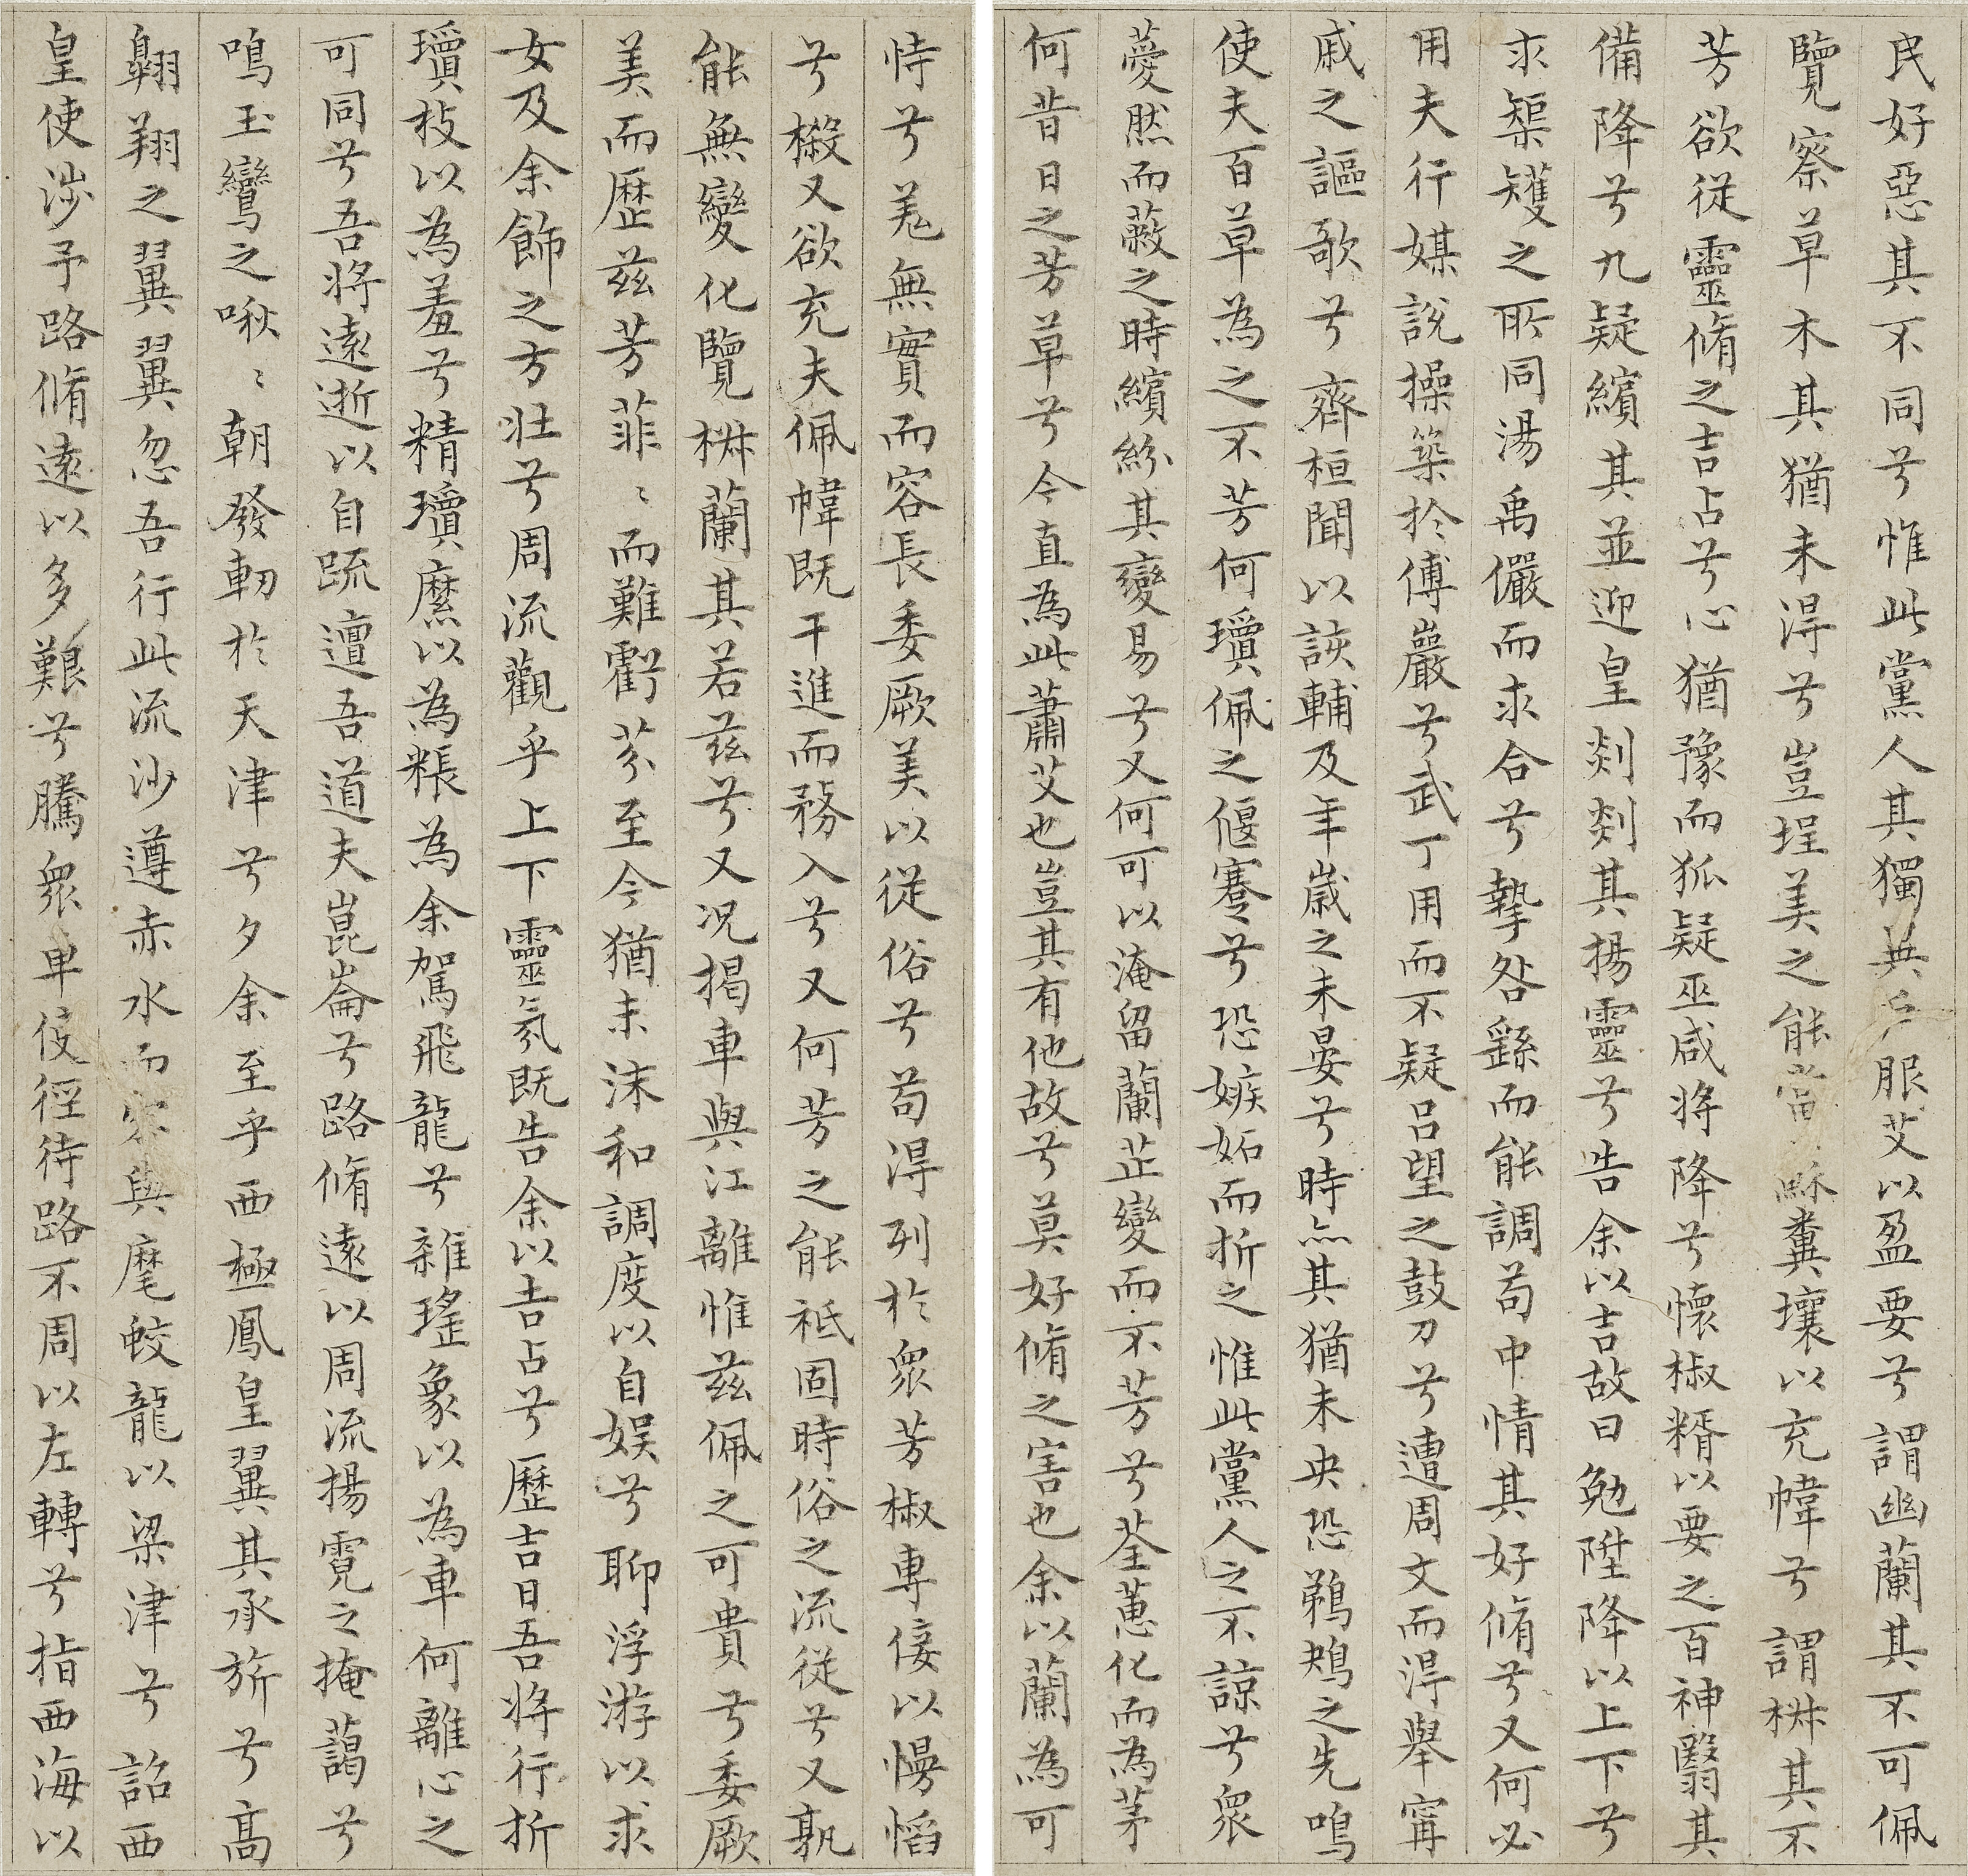 民好惡其不同兮惟此黨人其獨異戶服艾以盈要兮謂幽蘭其不可佩
覽察草木其猶未得兮豈珵美之能當蘇糞壤以充幃兮謂椒其不
芳欲從靈脩之吉占兮心猶豫而狐疑巫咸將降兮懷椒糈以要之百神翳其
備降兮九疑繽其並迎皇剡剡其揚靈兮告余以吉故曰勉陞降以上下兮
求榘矱之所同湯禹儼而求合兮摯咎繇而能調苟中情其好脩兮又何必
用夫行媒說操築於傅巖兮武丁用而不疑呂望之鼓刀兮遭周文而得舉甯
戚之謳歌兮齊桓聞以該輔及年歲之未晏兮時亦其猶未央恐鵜鴂之先鳴
使夫百草為之不芳何瓊佩之偃蹇兮恐嫉妬而折之惟此黨人之不諒兮衆
薆然而蔽之時繽紛其變易兮又何可以淹留蘭芷變而不芳兮荃蕙化而為茅
何昔日之芳草兮今直為此蕭艾也豈其有他故兮莫好脩之害也余以蘭為可
恃兮羌無實而容長委厥美以從俗兮苟得列於衆芳椒專佞以慢慆
兮樧又欲充夫佩幃既干進而務入兮又何芳之能祗固時俗之流從兮又孰
能無變化覽椒蘭其若茲兮又況揭車與江離惟茲佩之可貴兮委厥
美而歷茲芳菲〻而難虧芬至今猶未沬和調度以自娛兮聊浮游以求
女及余飾之方壯兮周流觀乎上下靈氛既告余以吉占兮歷吉日吾將行折
瓊枝以為羞兮精瓊爢以為粻為余駕飛龍兮雜瑤象以為車何離心之
可同兮吾將遠逝以自疏邅吾道夫崑崙兮路脩遠以周流揚霓之掩藹兮
鳴玉鸞之啾〻朝發軔於天津兮夕余至乎西極鳳皇翼其承旂兮高
翱翔之翼翼忽吾行此流沙遵赤水而容與麾蛟龍以梁津兮詔西
皇使涉予路脩遠以多艱兮騰衆車使徑待路不周以左轉兮指西海以